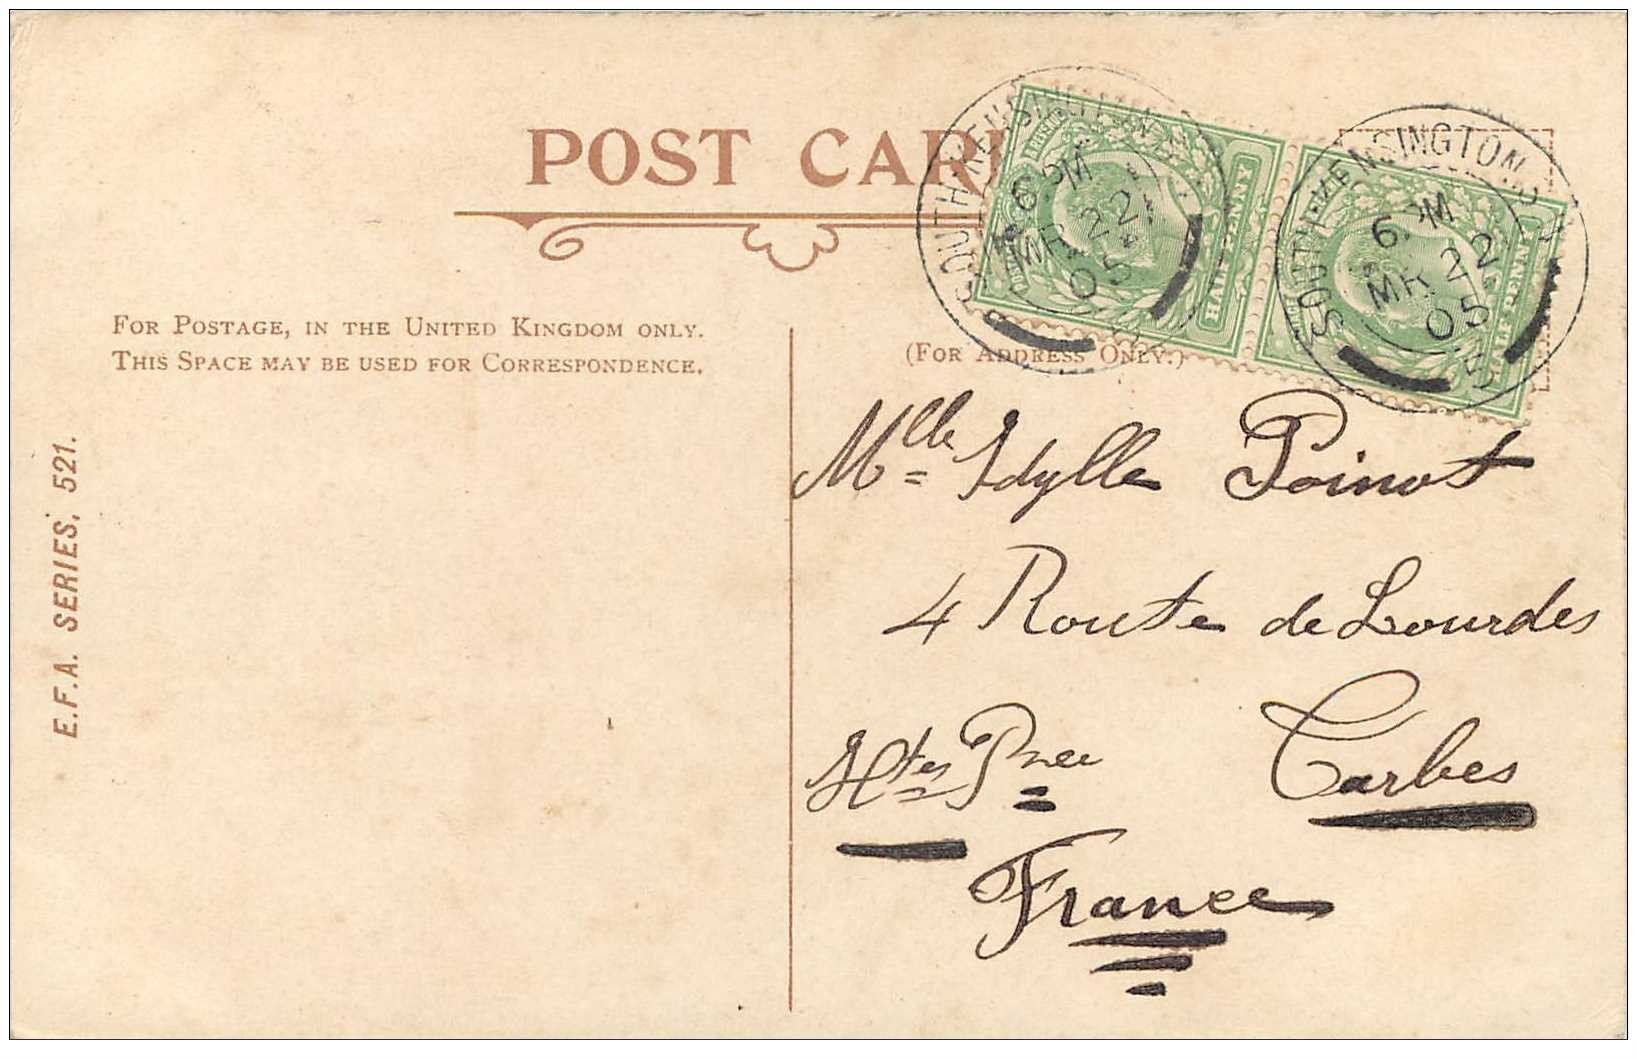 POST CAR
FOR POSTAGE, IN THE UNITED KINGDOM ONLY.
THIS SPACE MAY BE USED FOR CORRESPONDENCE.
(FOR ADDRESS ONLY.)
E.F.A. SERIES, 521.
SOUTH KENSINGTON
6 PM
MR 22
05
HALF PENNY
SOUTH KENSINGTON S.
6 PM
MR 22
05
5
HALF PENNY
Mlle Idylle Poinot
4 Route de Lourdes
Tarbes
Htes Pnee
France